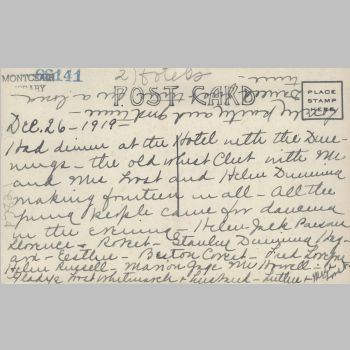 MONTCLAIR
LIBRARY
66141
2) Hotels
POST CARD
PLACE
STAMP
HERE
Dec. 26 - 1919 -
Had dinner at the Hotel with the Dun-
nings - the old whist Club with Mr
and Mrs Frost and Helen Dunning
making fourteen in all - All the
young people came for dancing
in the evening - Helen Jack Parsons
Florence - Robert - Stanley Dunning Hay-
ard - Esther - Beston Fred
Helen Russell - Marion Gage Mr Howell -
Gladys Frost Whitmarsh & husband - Luther &